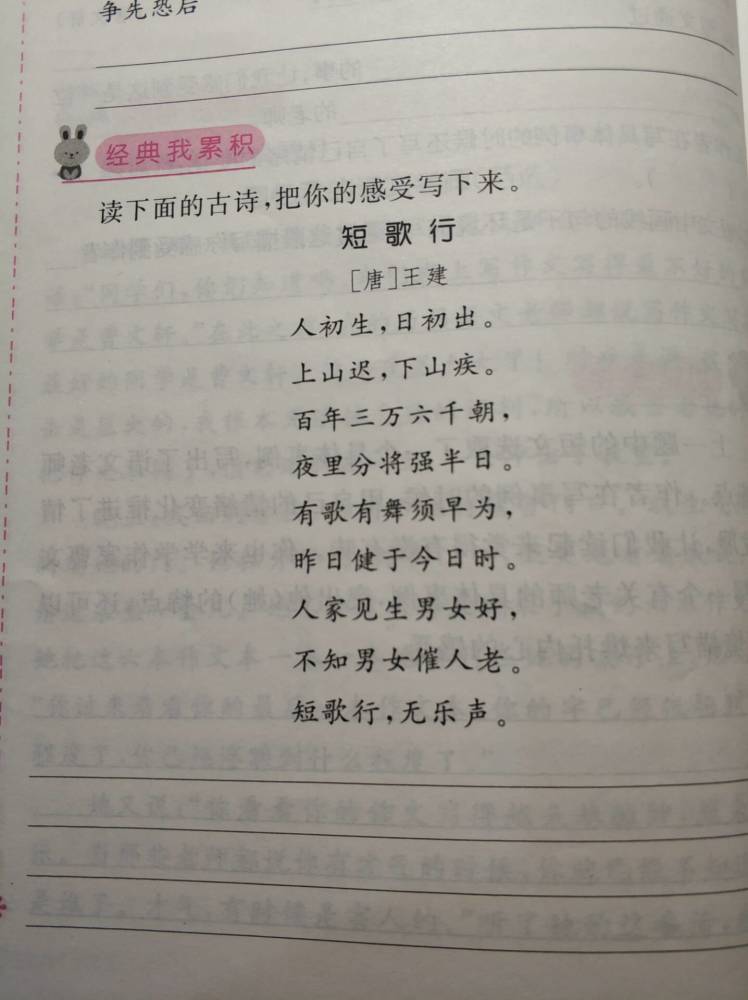 争先恐后
经典我累积
读下面的古诗，把你的感受写下来。
短歌行
［唐］王建
人初生，日初出。
上山迟，下山疾。
百年三万六千朝，
夜里分将强半日。
有歌有舞须早为，
昨日健于今日时。
人家见生男女好，
不知男女催人老。
短歌行，无乐声。